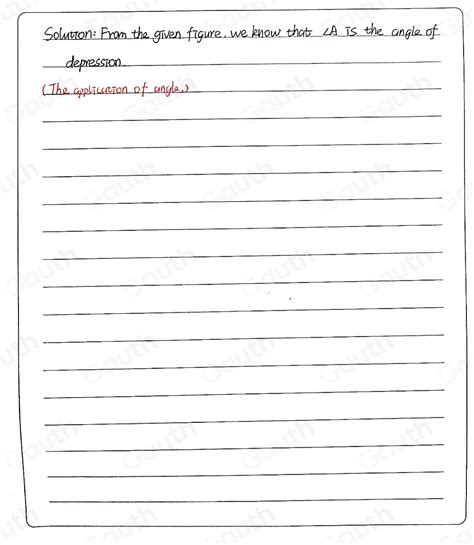 Solution: From the given figure, we know that ∠A is the angle of
depression.
(The application of angle.)
Gauth